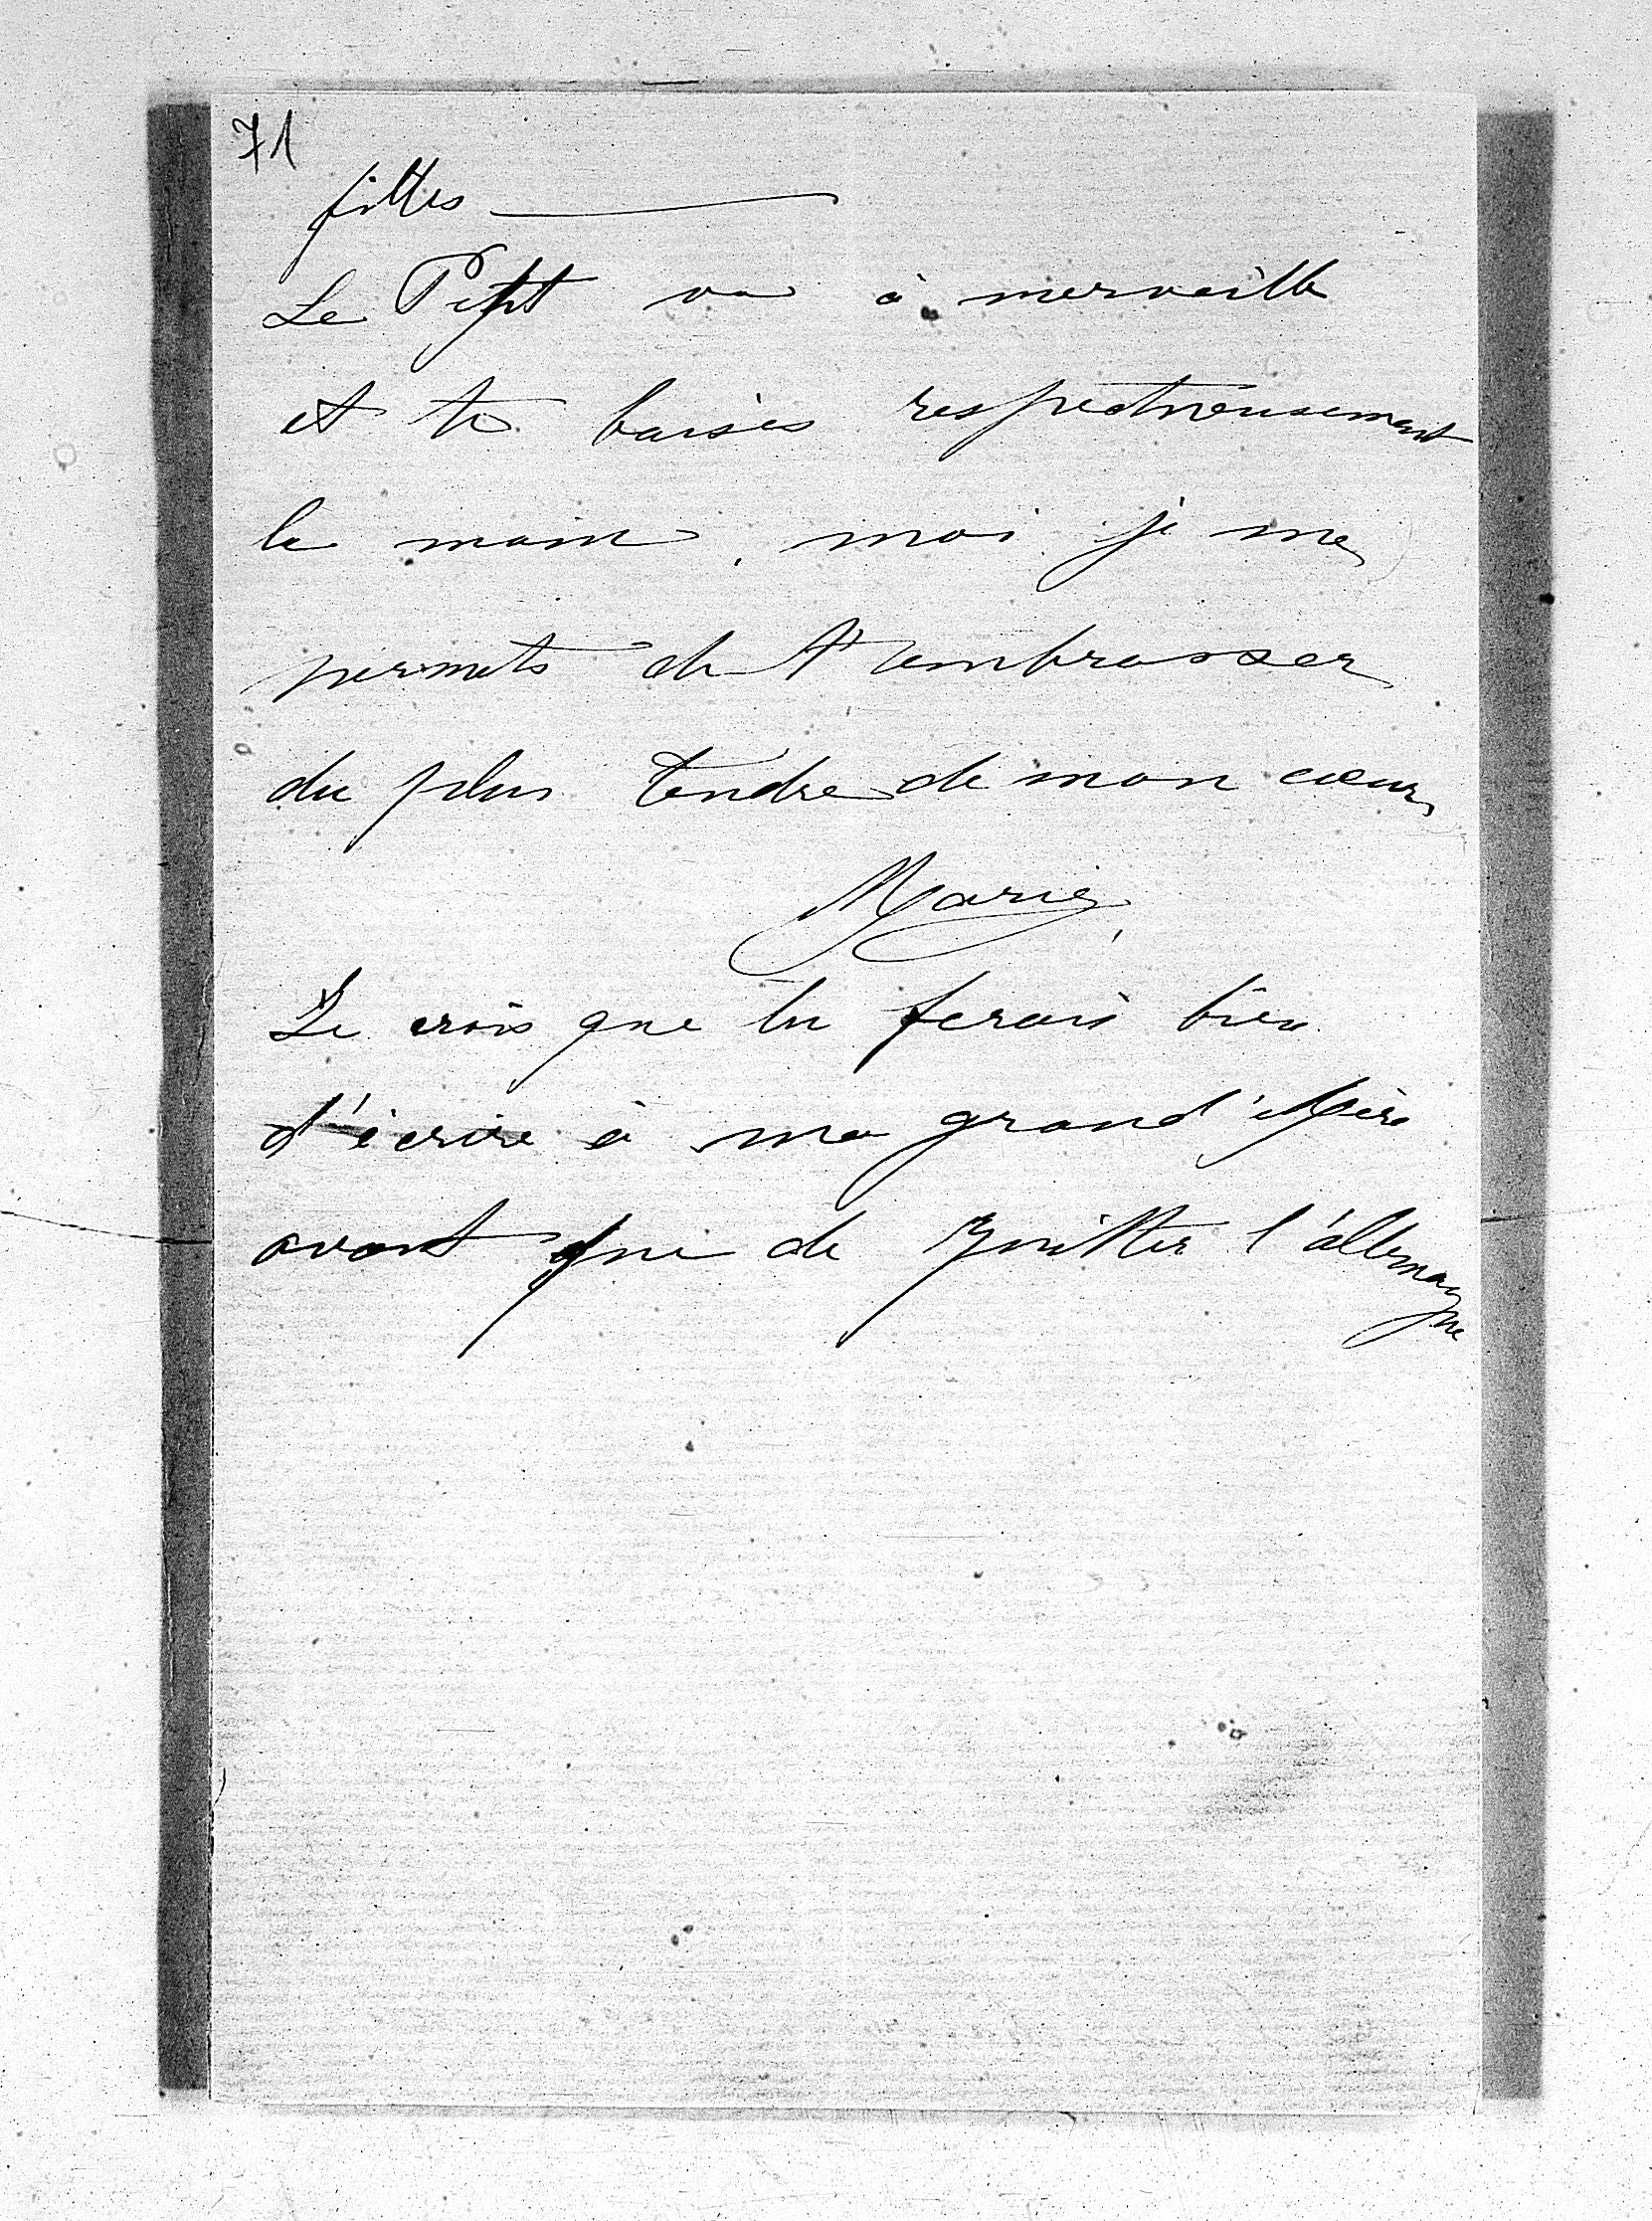 71
filles
Le Petit va à merveille
et te baises respectueusement
la main, moi je me
permets de t'embrasser
du plus tendre de mon cœur,
Marie,
Je crois que tu ferais bien
d'écrire à ma grand'Mère
avant que de quitter l'allemagne